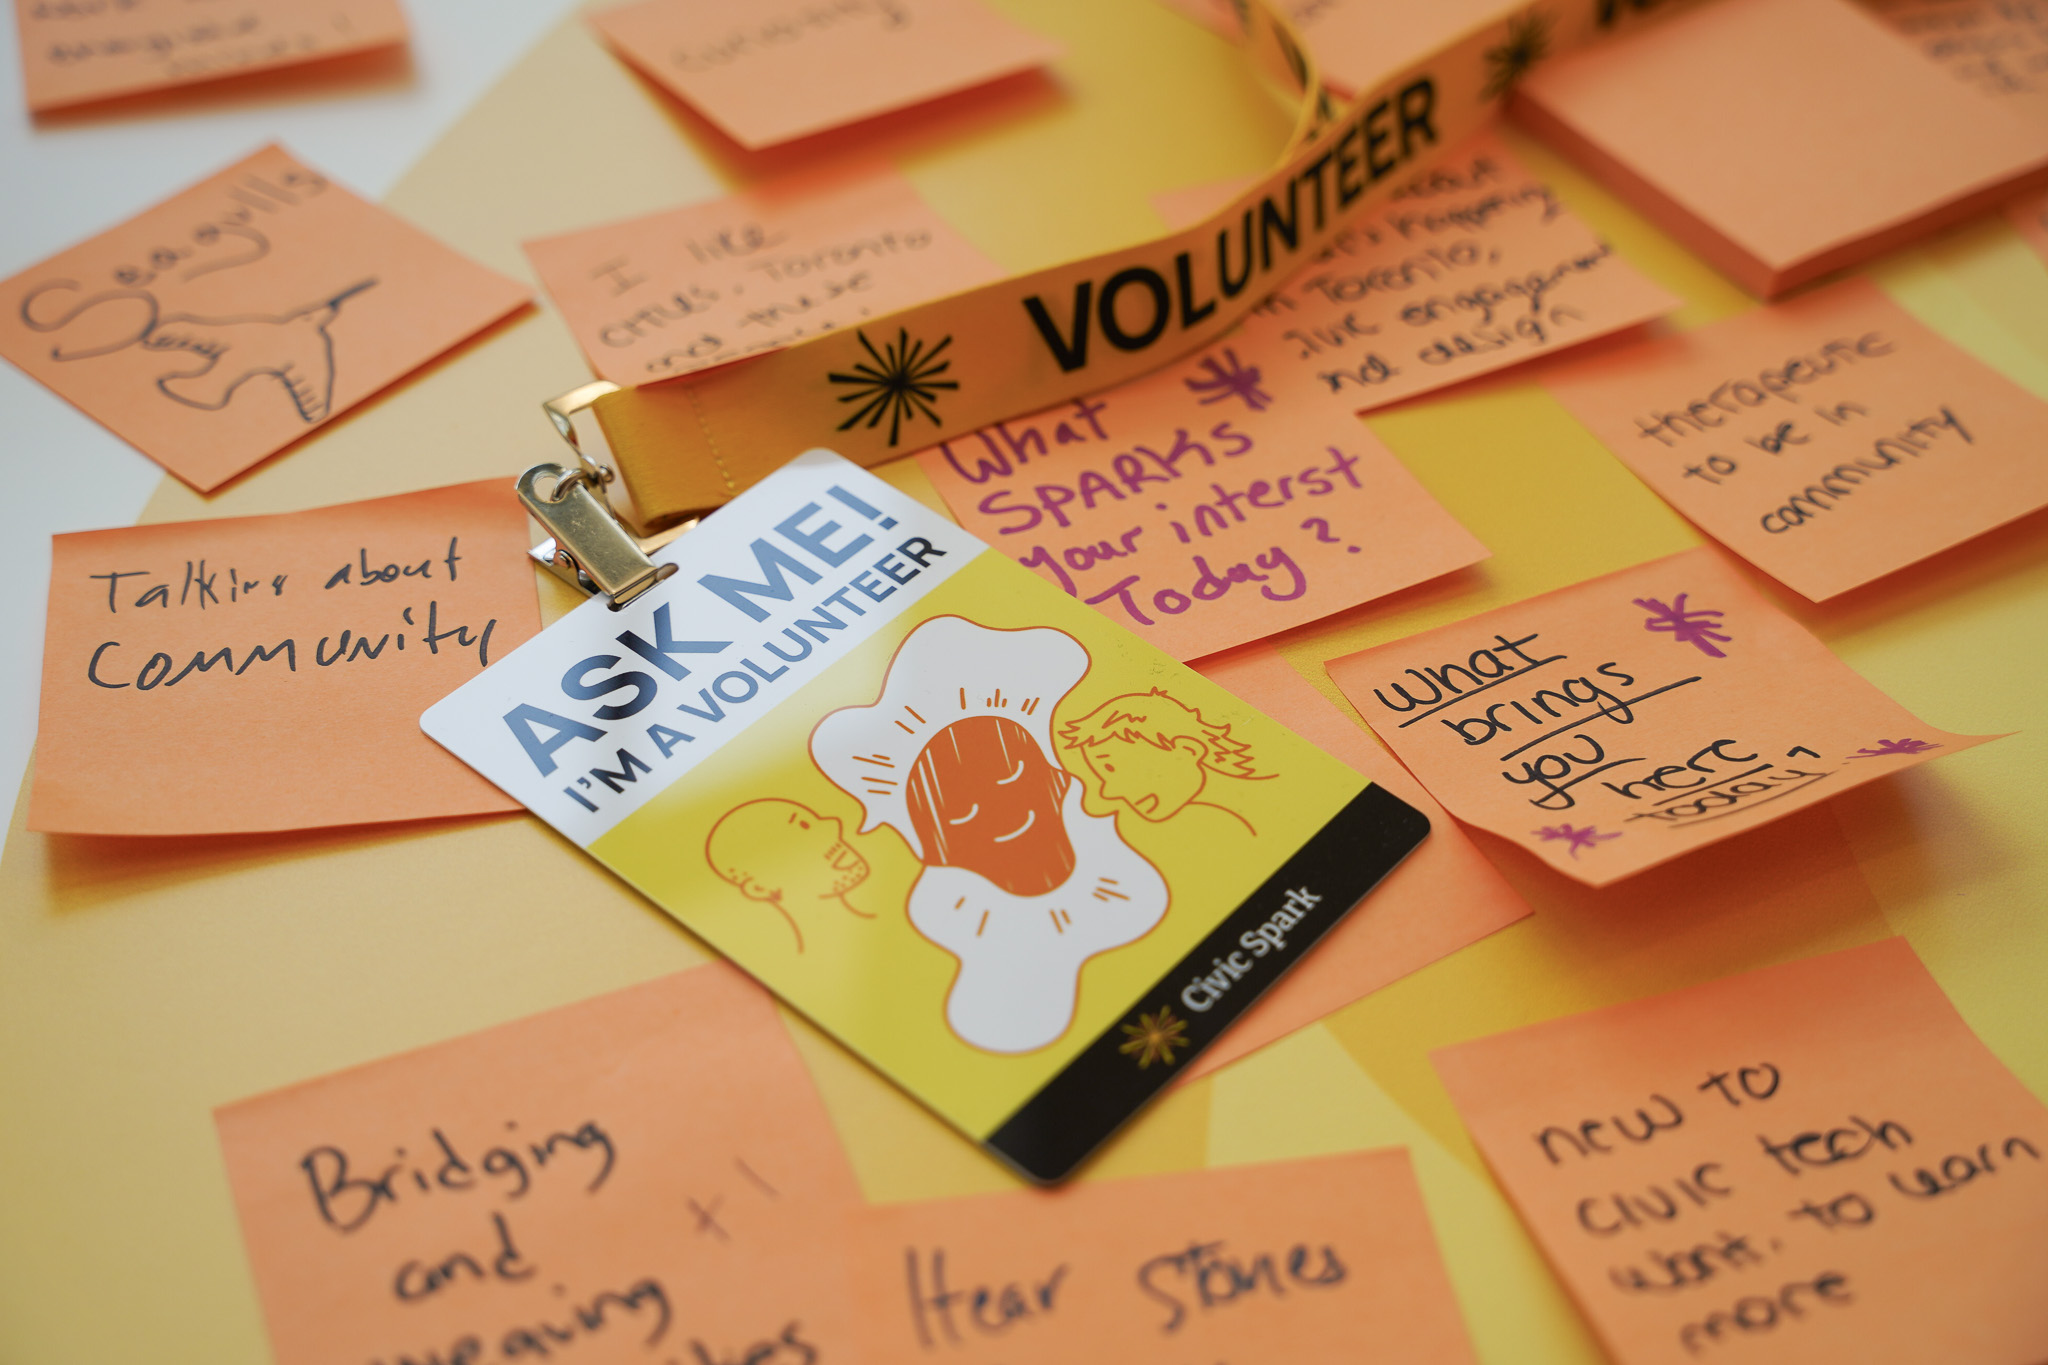 Seagulls
I like
cities, Toronto
and these
VOLUNTEER
What's happening
in Toronto,
civic engagement
and design
therapeutic
to be in
community
What
SPARKS
your interst
Today?
Talking about
Community
ASK ME!
I'M A VOLUNTEER
Civic Spark
what
brings
you
here
today?
Bridging
and
weaving
+1
Hear stories
new to
civic tech
want to learn
more